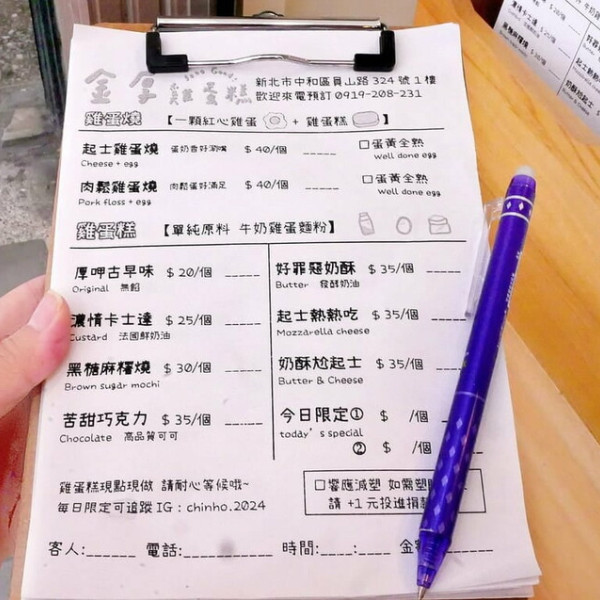 金享 雞蛋糕
新北市中和區員山路 324 號 1 樓
歡迎來電預訂 0919-208-231
雞蛋燒 【一顆紅心雞蛋 + 雞蛋糕】
起士雞蛋燒 蛋奶香好涮嘴 $ 40/個 _____ □蛋黃全熟
Cheese + egg Well done egg
肉鬆雞蛋燒 肉鬆蛋好滿足 $ 40/個 _____ □蛋黃全熟
Pork floss + egg Well done egg
雞蛋糕 【單純原料 牛奶雞蛋麵粉】
厚呷古早味 $ 20/個 _____
Original 無餡
濃情卡士達 $ 25/個 _____
Custard 法國鮮奶油
黑糖麻糬燒 $ 30/個 _____
Brown sugar mochi
苦甜巧克力 $ 35/個 _____
Chocolate 高品質可可
好罪惡奶酥 $ 35/個 _____
Butter 發酵奶油
起士熱熱吃 $ 35/個 _____
Mozzarella cheese
奶酥尬起士 $ 35/個
Butter & Cheese
今日限定① $ /個
today's special
② $ /個
雞蛋糕現點現做 請耐心等候哦~
每日限定可追蹤 IG : chinho.2024
□響應減塑 如需塑
請 +1 元投進捐
客人:______ 電話:___________ 時間:____:____ 金